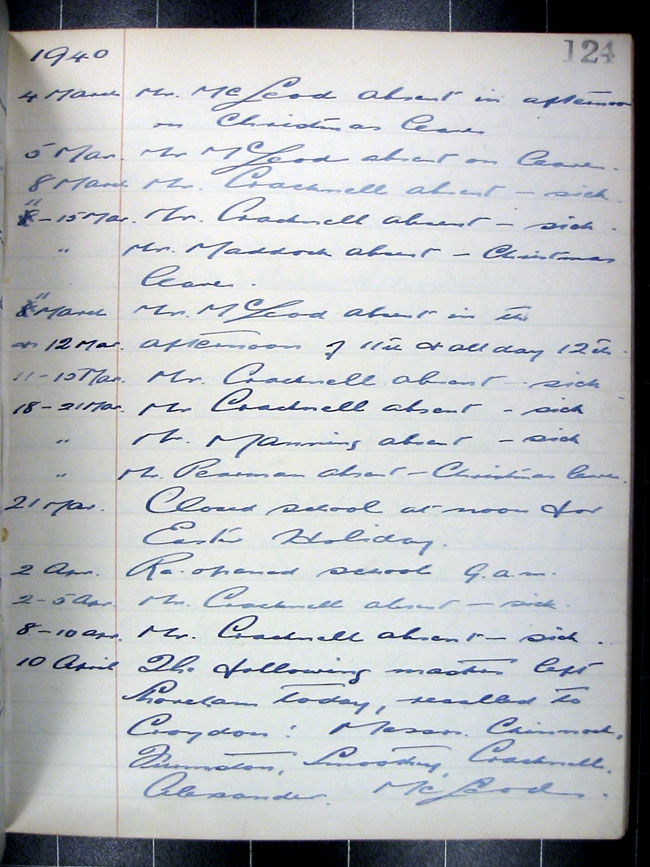 1940
124
4 March Mr. McLeod absent in afternoon
on Christmas leave
5 Mar. Mr McLeod absent on leave.
8 March Mr. Cracknell absent – sick.
11–15 Mar. Mr. Cracknell absent – sick.
" Mr. Maddock absent – Christmas
leave.
11 March Mr. McLeod absent in the
& 12 Mar. afternoon of 11th & all day 12th.
11–15 Mar. Mr. Cracknell absent – sick
18–21 Mar. Mr Cracknell absent – sick
" Mr. Manning absent – sick
" Mr. Pearman absent – Christmas leave.
21 Mar. Closed school at noon for
Easter Holiday.
2 Apr. Re-opened school 9 a.m.
2–5 Apr. Mr. Cracknell absent – sick.
8–10 Apr. Mr. Cracknell absent – sick.
10 April The following masters left
Shoreham today, recalled to
Croydon: Messrs. Chinnock,
Smoothy, Cracknell,
Alexander. McLeod.